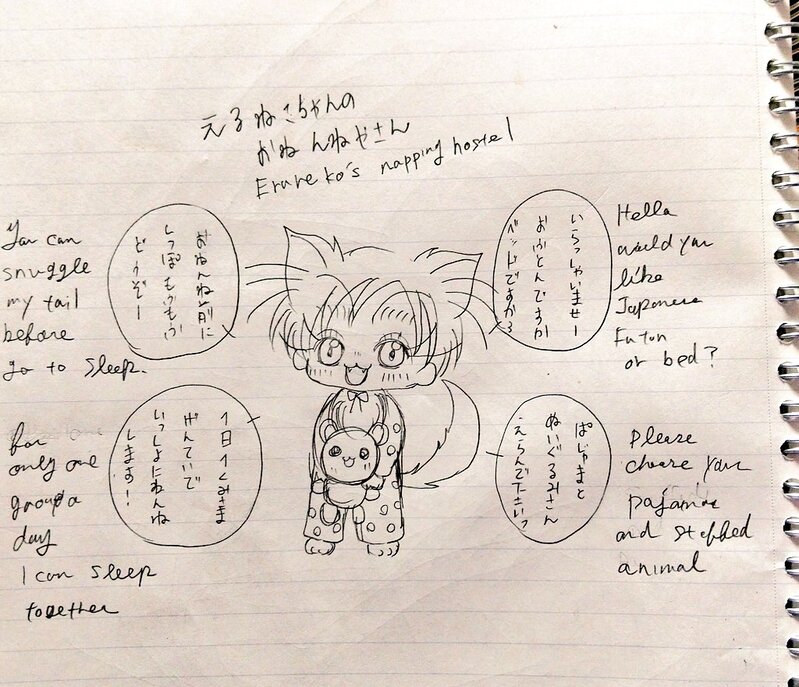 えるねこちゃんの
おねんねやさん
Eruneko's napping hostel
いらっしゃいませー
おふとんですか
ベッドですか?
Hello
would you
like
Japanese
Futon
or bed?
おねんね前に
しっぽもふもふ
どうぞー
You can
snuggle
my tail
before
go to sleep.
ぱじゃまと
ぬいぐるみさん
えらんで下さいっ
Please
choose your
pajamas
and stuffed
animal
1日1くみさま
げんていで
いっしょにねんね
します!
for
only one
group a
day
I can sleep
together